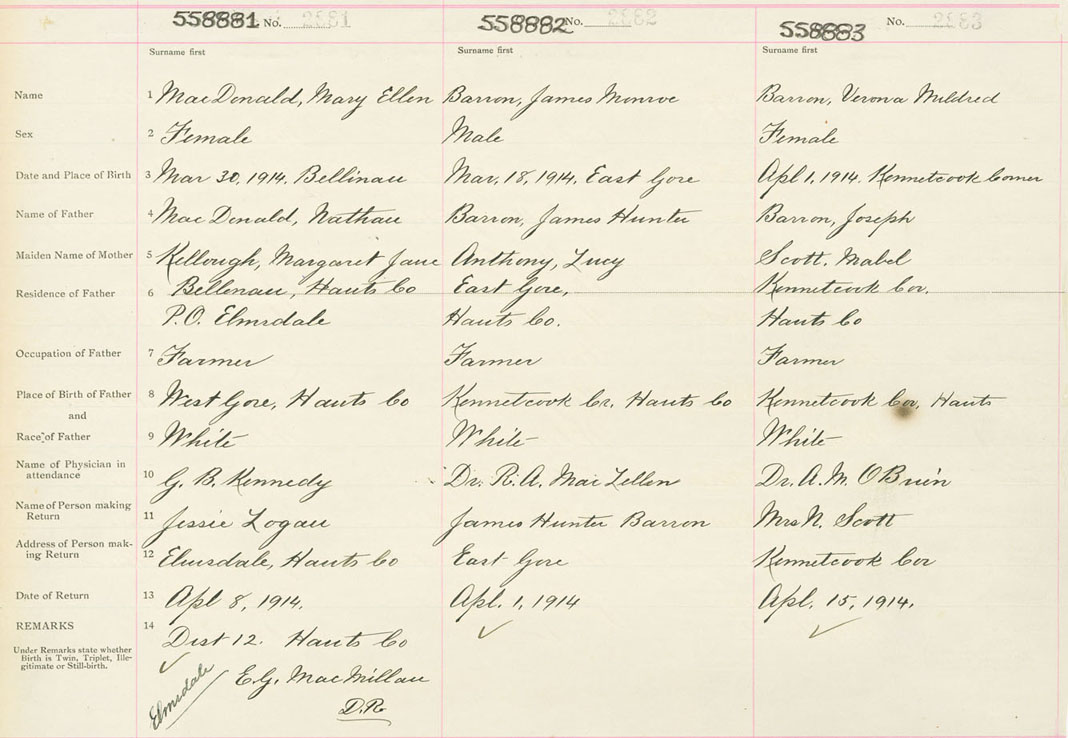 558881 No. 2881 558882 No. 2882 558883 No. 2883
Surname first Surname first Surname first
Name 1 MacDonald, Mary Ellen Barron, James Monroe Barron, Verona Mildred
Sex 2 Female Male Female
Date and Place of Birth 3 Mar 30, 1914. Bellinau Mar. 18, 1914. East Gore Apl 1, 1914. Kennetcook Corner
Name of Father 4 MacDonald, Nathan Barron, James Hunter Barron, Joseph
Maiden Name of Mother 5 Killough, Margaret Jane Anthony, Lucy Scott. Mabel
Residence of Father 6 Bellenau, Hants Co East Gore, Kennetcook Cor.
P.O. Elmsdale Hants Co. Hants Co
Occupation of Father 7 Farmer Farmer Farmer
Place of Birth of Father 8 West Gore, Hants Co Kennetcook Cr. Hants Co Kennetcook Cor, Hants
and
Race of Father 9 White White White
Name of Physician in
attendance 10 G. B. Kennedy Dr. R. A. MacLellen Dr. A. M. OBrien
Name of Person making
Return 11 Jessie Logan James Hunter Barron Mrs N. Scott
Address of Person mak-
ing Return 12 Elmsdale, Hants Co East Gore Kennetcook Cor
Date of Return 13 Apl 8, 1914. Apl. 1, 1914 Apl. 15, 1914.
REMARKS 14 Dist 12. Hants Co
Under Remarks state whether
Birth is Twin, Triplet, Ille-
gitimate or Still-birth.
Elmsdale E. G. MacMillan
D.R.